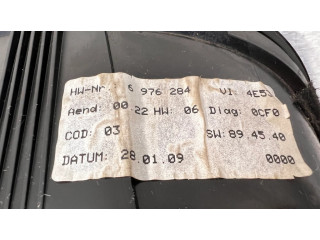 HW-Nr. 6 976 284 VI 4E53
Aend: 00 22 HW: 06 Diag: 0CF0
COD: 03 SW: 89.45.40
DATUM: 28.01.09 0000